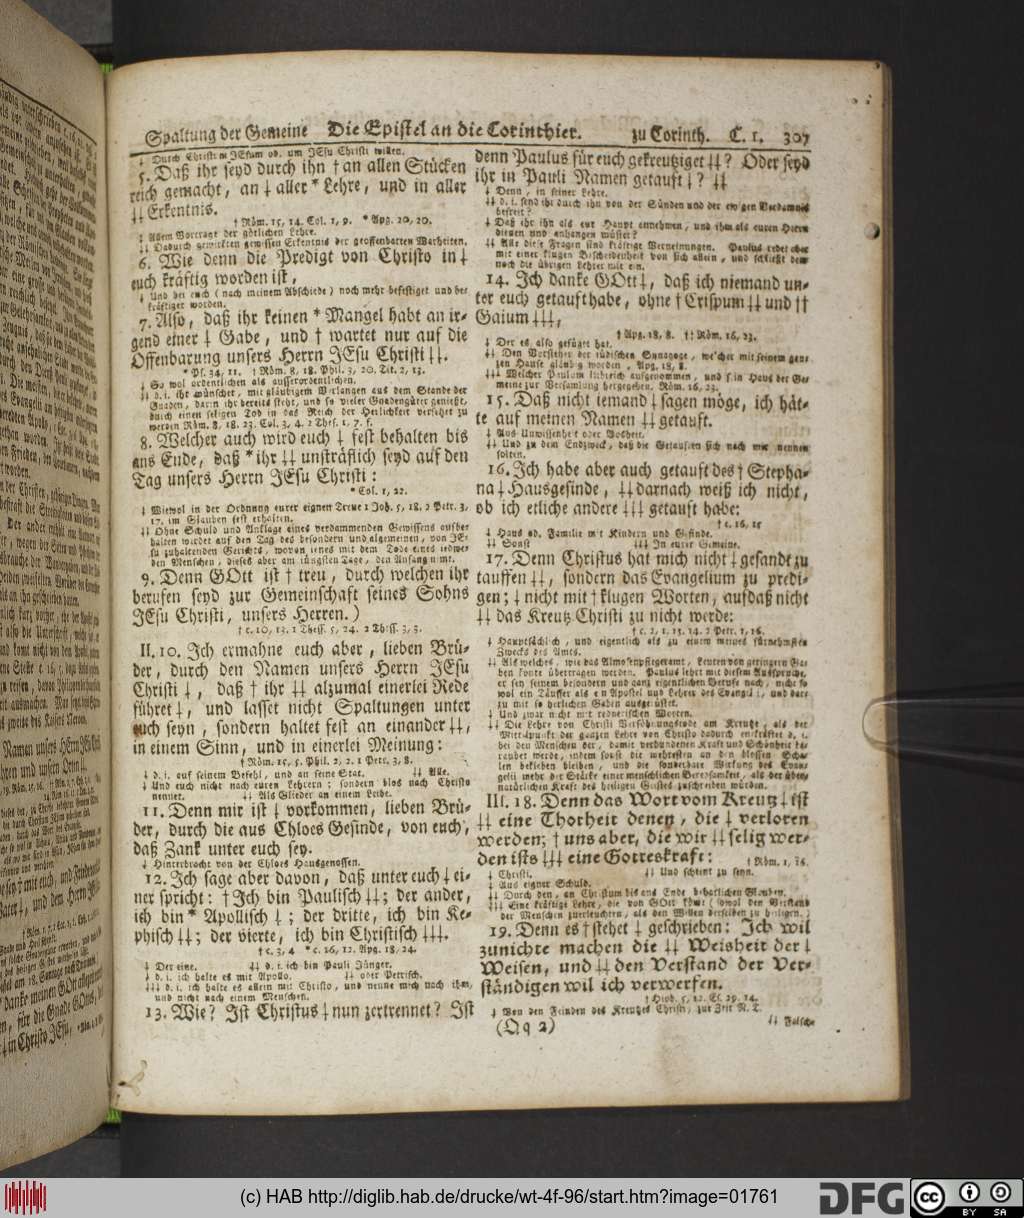 Spaltung der Gemeine Die Epistel an die Corinthier. zu Corinth. C. 1. 307
‡ Durch Christum JEsum od. um JEsu Christi willen.
5. Daß ihr seyd durch ihn † an allen Stücken
reich gemacht, an ‡ aller * Lehre, und in aller
‡‡ Erkentnis.
† Röm. 15, 14. Col. 1, 9. * Apg. 20, 20.
‡ Allem Vortrage der götlichen Lehre.
‡‡ Dadurch gewirkten gewissen Erkentnis der geoffenbarten Warheiten.
6. Wie denn die Predigt von Christo in ‡
euch kräftig worden ist,
‡ Und bei euch (nach meinem Abschiede) noch mehr befestiget und bekräftiget
worden.
7. Also, daß ihr keinen * Mangel habt an ir-
gend einer ‡ Gabe, und † wartet nur auf die
Offenbarung unsers Herrn JEsu Christi ‡‡.
* Ps. 34, 11. † Röm. 8, 18. Phil. 3, 20. Tit. 2, 13.
‡ So wol ordentlichen als ausserordentlichen.
‡‡ d. i. ihr wünschet, mit gläubigem Verlangen aus dem Stande der
Gnaden, darin ihr bereits stehet, und so vieler Gnadengüter genießt,
durch einen seligen Tod in das Reich der Herlichkeit versetzt zu
werden Röm. 8, 18. 23. Col. 3, 4. 2 Thess. 1, 7. s.
8. Welcher auch wird euch ‡ fest behalten bis
ans Ende, daß * ihr ‡‡ unsträflich seyd auf den
Tag unsers Herrn JEsu Christi:
* Col. 1, 22.
‡ Wiewol in der Ordnung eurer eignen Treue 1 Joh. 5, 18. 2 Petr. 3,
17. im Glauben fest erhalten.
‡‡ Ohne Schuld und Anklage eines verdammenden Gewissens ausbe-
halten werdet auf den Tag des besondern und algemeinen, von JE-
su zuhaltenden Gerichts, wovon jenes mit dem Tode eines iedwe-
den Menschen, dieses aber am iüngsten Tage, den Anfang nimt.
9. Denn GOtt ist † treu, durch welchen ihr
berufen seyd zur Gemeinschaft seines Sohns
JEsu Christi, unsers Herren.)
† c. 10, 13. 1 Thess. 5, 24. 2 Thess. 3, 3.
II. 10. Ich ermahne euch aber, lieben Brü-
der, durch den Namen unsers Herrn JEsu
Christi ‡, daß † ihr ‡‡ alzumal einerlei Rede
führet ‡, und lasset nicht Spaltungen unter
euch seyn, sondern haltet fest an einander ‡‡,
in einem Sinn, und in einerlei Meinung:
† Röm. 15, 5. Phil. 2, 2. 1 Petr. 3, 8.
‡ d. i. auf seinem Befehl, und an seine Stat. ‡‡ Alle.
‡ Und euch nicht nach euren Lehrern; sondern blos nach Christo
nennet. ‡‡ Als Glieder an einem Leibe.
11. Denn mir ist ‡ vorkommen, lieben Brü-
der, durch die aus Chloes Gesinde, von euch,
daß Zank unter euch sey.
‡ Hinterbracht von der Chloes Hausgenossen.
12. Ich sage aber davon, daß unter euch ‡ ei-
ner spricht: † Ich bin Paulisch ‡‡; der ander,
ich bin * Apollisch ‡; der dritte, ich bin Ke-
phisch ‡‡; der vierte, ich bin Christisch ‡‡‡.
† c. 3, 4 * c. 16, 12. Apg. 18, 24.
‡ Der eine. ‡‡ d. i. ich bin Pauli Jünger.
‡ d. i. ich halte es mit Apollo. ‡‡ oder Petrisch.
‡‡‡ d. i. ich halte es allein mit Christo, und nenne mich nach ihm,
und nicht nach einem Menschen.
13. Wie? Ist Christus ‡ nun zertrennet? Ist
denn Paulus für euch gekreutziget ‡‡? Oder seyd
ihr in Pauli Namen getauft ‡? ‡‡
‡ Denn, in seiner Lehre.
‡‡ d. i. seyd ihr durch ihn von der Sünden und der ewigen Verdamnis
befreit?
‡ Daß ihr ihn als eur Haupt annehmen, und ihm als euren Herrn
dienen und anhangen müsset?
‡‡ Alle diese Fragen sind kräftige Verneinungen. Paulus redet aber
mit einer klugen Bescheidenheit von sich allein, und schließt dem
noch die übrigen Lehrer mit ein.
14. Ich danke GOtt ‡, daß ich niemand un-
ter euch getauft habe, ohne † Crispum ‡‡ und ††
Gaium ‡‡‡,
† Apg. 18, 8. †† Röm. 16, 23.
‡ Der es also gefüget hat.
‡‡ Den Vorsteher der iüdischen Synagoge, welcher mit seinem gan-
zen Hause gläubig worden, Apg. 18, 8.
‡‡‡ Welcher Paulum liebreich aufgenommen, und sein Haus der Ge-
meine zur Versamlung hergegeben. Röm. 16, 23.
15. Daß nicht iemand ‡ sagen möge, ich hät-
te auf meinen Namen ‡‡ getauft.
‡ Aus Unwissenheit oder Bosheit.
‡‡ Und zu dem Endzweck, daß die Getauften sich nach mir nennen
solten.
16. Ich habe aber auch getauft des † Stepha-
na ‡ Hausgesinde, ‡‡ darnach weiß ich nicht,
ob ich etliche andere ‡‡‡ getauft habe:
† c. 16, 15
‡ Haus od. Familie mit Kindern und Gesinde.
‡‡ Sonst ‡‡‡ In eurer Gemeine.
17. Denn Christus hat mich nicht ‡ gesandt zu
tauffen ‡‡, sondern das Evangelium zu predi-
gen; ‡ nicht mit † klugen Worten, auf daß nicht
‡‡ das Kreutz Christi zu nicht werde:
† c. 2, 1. 13. 14. 2 Petr. 1, 16.
‡ Hauptsächlich, und eigentlich als zu einem meines fürnehmsten
Zwecks des Amts.
‡‡ Als welches, wie das Almosenpflegeramt, Leuten von geringern Ga-
ben konte übertragen werden. Paulus lehrt mit diesem Ausspruche,
er sey seinem besondern und ganz eigentlichen Berufe nach, nicht so
wol ein Täuffer als ein Apostel und Lehrer des Evangelii, und darzu
mit so herlichen Gaben ausgerüstet.
‡ Und zwar nicht mit rednerischen Worten.
‡‡ Die Lehre von Christi Versöhnungstode am Kreutze, als der
Mittelpunkt der ganzen Lehre von Christo dadurch entkräftet d. i.
bei den Menschen der, damit verbundenen Kraft und Schönheit be-
raubet werde, indem sonst die mehresten an den blossen Scha-
len bekleben bleiben, und die sonderbare Wirkung des Evan-
gelii mehr der Stärke einer menschlichen Beredsamkeit, als der über-
natürlichen Kraft des heiligen Geistes zuschreiben würden.
III. 18. Denn das Wort vom Kreutz ‡ ist
‡‡ eine Thorheit denen, die ‡ verloren
werden; † uns aber, die wir ‡‡ selig wer-
den ists ‡‡‡ eine Gotteskraft: † Röm. 1, 16.
‡ Christi. ‡‡ Und scheint zu seyn.
‡ Aus eigner Schuld.
‡‡ Durch den, an Christum bis ans Ende beharlichen Glauben.
‡‡‡ Eine kräftige Lehre, die von GOtt kömt (sowol den Verstand
der Menschen zuerleuchten, als den Willen derselben zu heiligen.)
19. Denn es † stehet ‡ geschrieben: Ich wil
zunichte machen die ‡‡ Weisheit der ‡
Weisen, und ‡‡ den Verstand der Ver-
ständigen wil ich verwerfen.
† Hiob. 5, 12. Es. 29, 14.
‡ Von den Feinden des Kreutzes Christi, zur Zeit N. T.
(Qq 2) ‡‡ Falsche
(c) HAB http://diglib.hab.de/drucke/wt-4f-96/start.htm?image=01761
DFG
cc BY SA